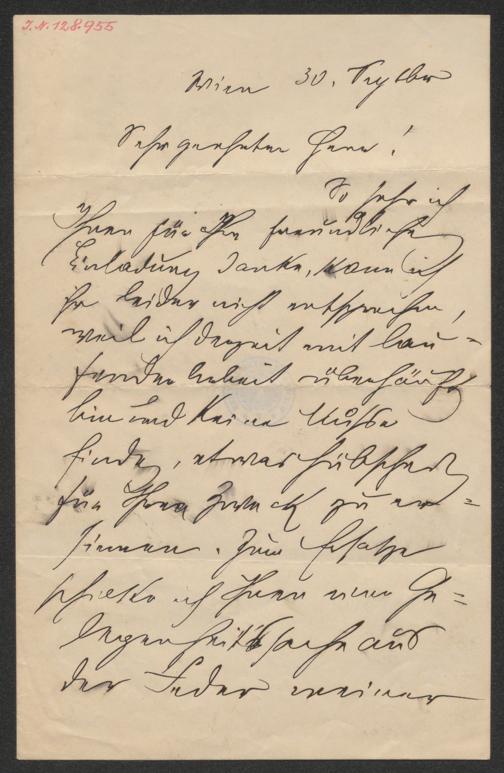 J.N. 128.955
Wien 30. Septber
Sehr geehrter Herr!
So sehr ich
Ihnen für Ihre freundliche
Einladung danke, kann ich
ihr leider nicht entsprechen,
weil ich derzeit mit lau=
fender Arbeit überhäuft
bin und keine Muße
finde, etwas Hübsches
für Ihren Zweck zu er=
sinnen. Zum Ersatze
schicke ich Ihnen eine Ge=
legenheitssache aus
der Feder meiner